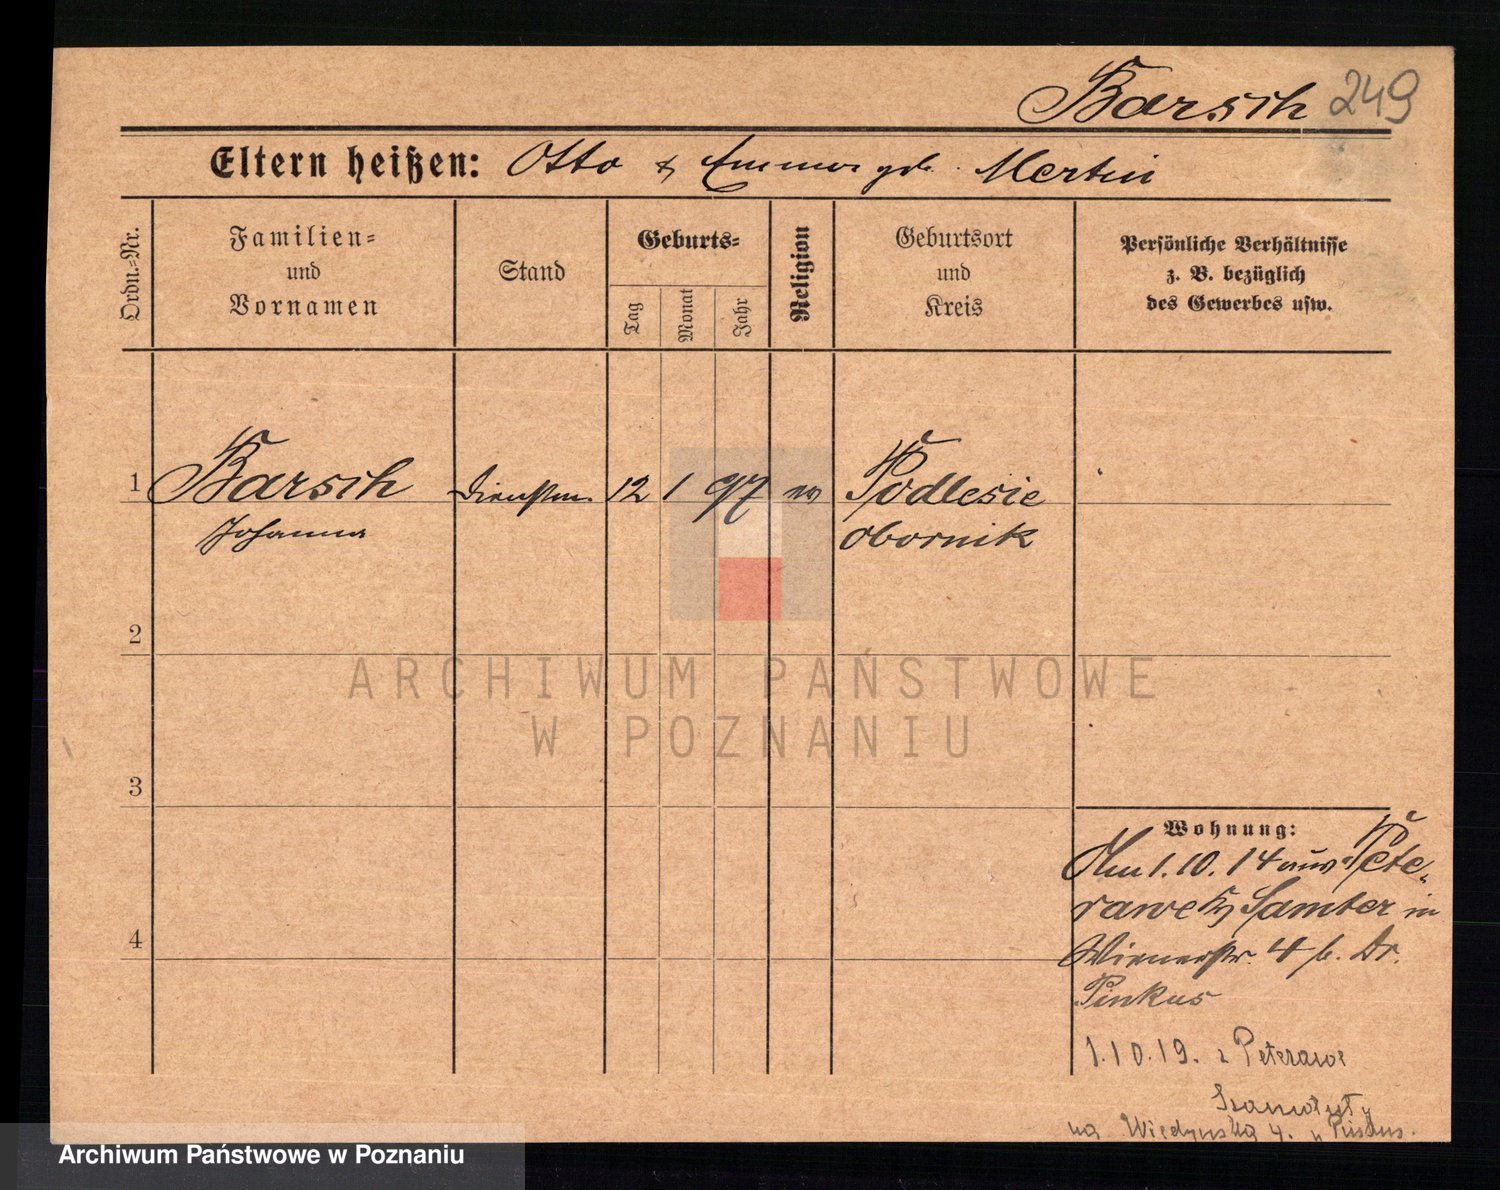 Barsch 249
Eltern heißen: Otto & Emma geb. Mertin
Ordn.-Nr.
Familien-
und
Vornamen
Stand
Geburts-
Tag
Monat
Jahr
Religion
Geburtsort
und
Kreis
Persönliche Verhältnisse
z. B. bezüglich
des Gewerbes usw.
1 Barsch Dienstm. 12 1 97 ev Podlesie
Johanna Obornik
2
3
4
Wohnung:
Am 1.10.14 aus Pete-
rawe Kr Samter in
Wienerstr. 4 b. Dr.
Pinkus
1.10.19. z Peterawe
Szamotuły
na Wiedeńska 4. u Pinkus.
ARCHIWUM PAŃSTWOWE
W POZNANIU
Archiwum Państwowe w Poznaniu